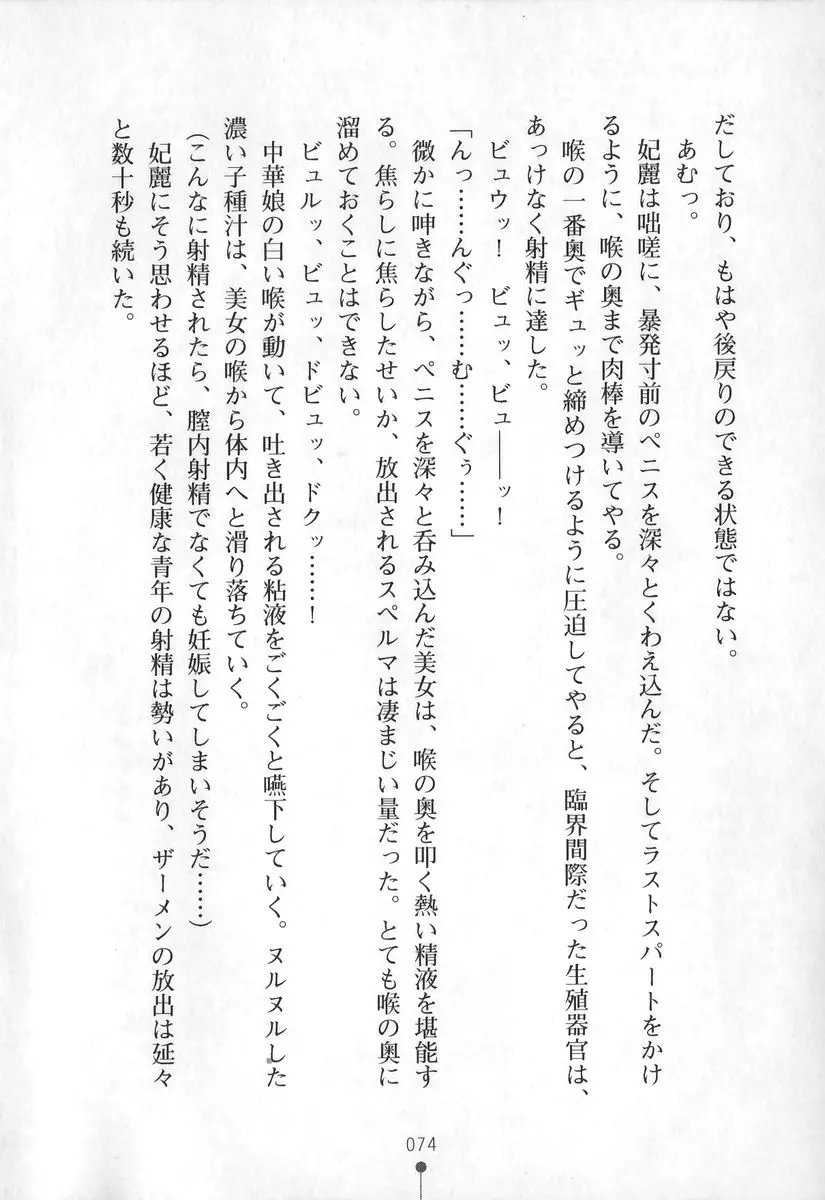 だしており、もはや後戻りのできる状態ではない。
あむっ。
妃麗は咄嗟に、暴発寸前のペニスを深々とくわえ込んだ。そしてラストスパートをかけ
るように、喉の奥まで肉棒を導いてやる。
喉の一番奥でギュッと締めつけるように圧迫してやると、臨界間際だった生殖器官は、
あっけなく射精に達した。
ビュウッ！　ビュッ、ビュ――ッ！
「んっ……んぐっ……む……ぐぅ……」
微かに呻きながら、ペニスを深々と呑み込んだ美女は、喉の奥を叩く熱い精液を堪能す
る。焦らしに焦らしたせいか、放出されるスペルマは凄まじい量だった。とても喉の奥に
溜めておくことはできない。
ビュルッ、ビュッ、ドビュッ、ドクッ……！
中華娘の白い喉が動いて、吐き出される粘液をごくごくと嚥下していく。ヌルヌルした
濃い子種汁は、美女の喉から体内へと滑り落ちていく。
（こんなに射精されたら、膣内射精でなくても妊娠してしまいそうだ……）
妃麗にそう思わせるほど、若く健康な青年の射精は勢いがあり、ザーメンの放出は延々
と数十秒も続いた。
074